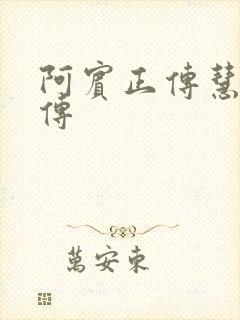 阿賓正傳慧
傳
萬安東